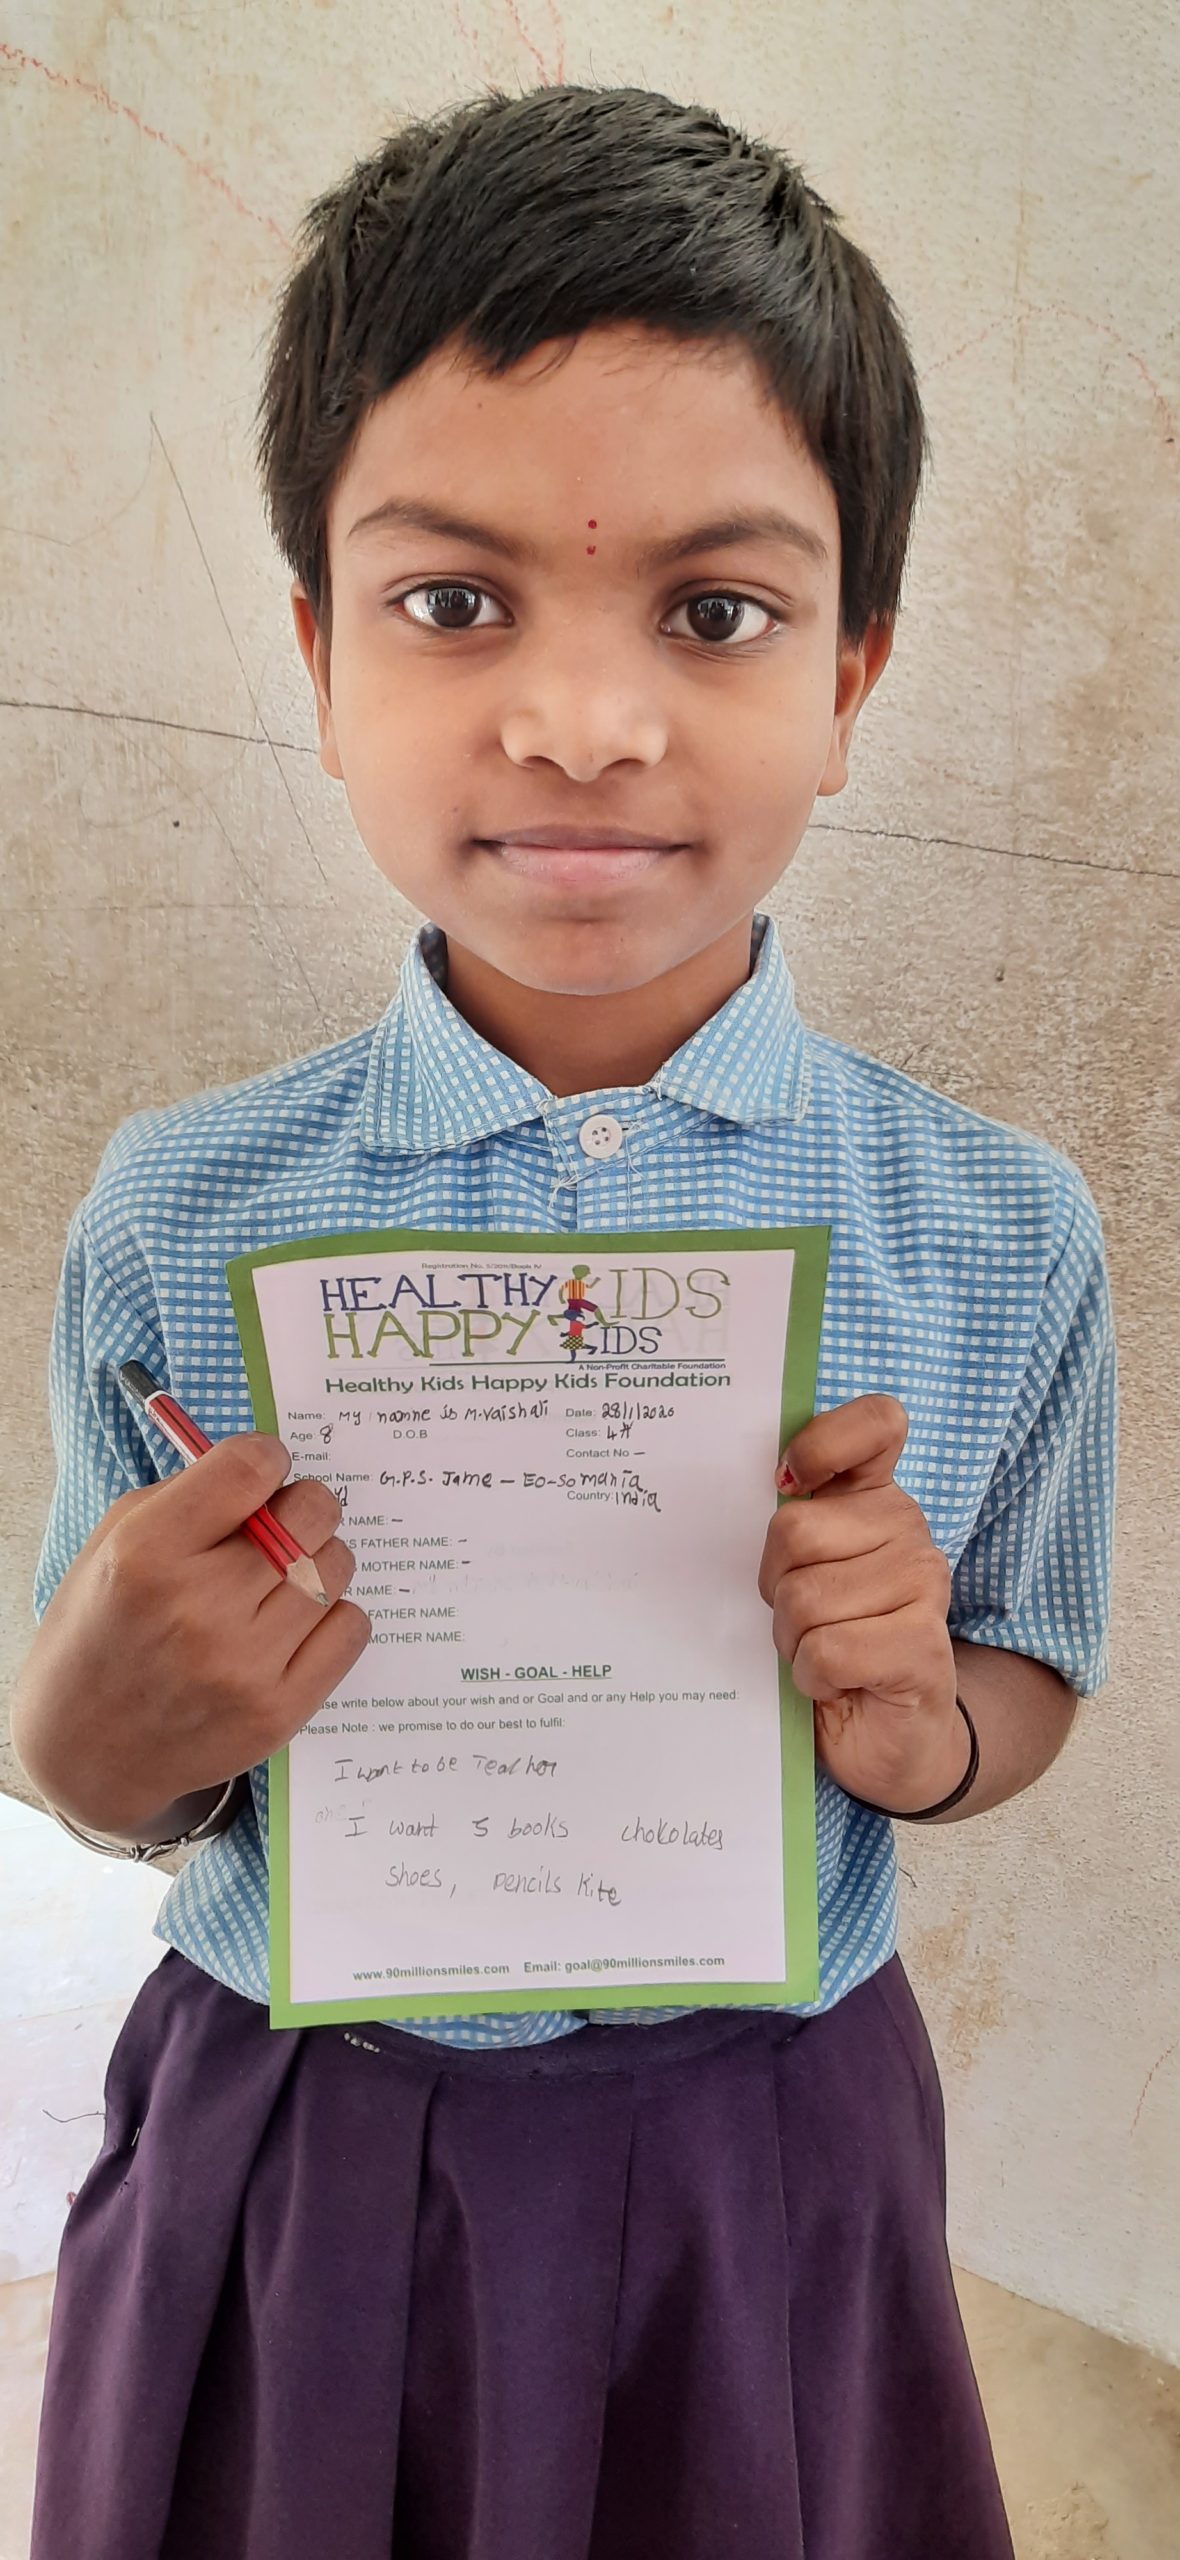 Registration No. 5/2011/Book IV
HEALTHY KIDS
HAPPY KIDS
A Non-Profit Charitable Foundation
Healthy Kids Happy Kids Foundation
Name: My namne is M.Vaishali Date: 28/1/2020
Age: 8 D.O.B Class: 4th
E-mail: Contact No –
School Name: G.P.S. Jame – EO-SO mania
Country: India
R NAME: –
'S FATHER NAME: –
MOTHER NAME: –
R NAME: –
FATHER NAME:
MOTHER NAME:
WISH - GOAL - HELP
se write below about your wish and or Goal and or any Help you may need:
Please Note : we promise to do our best to fulfil:
I want to be Teacher
I want 5 books chokolates
Shoes, pencils kite
www.90millionsmiles.com Email: goal@90millionsmiles.com